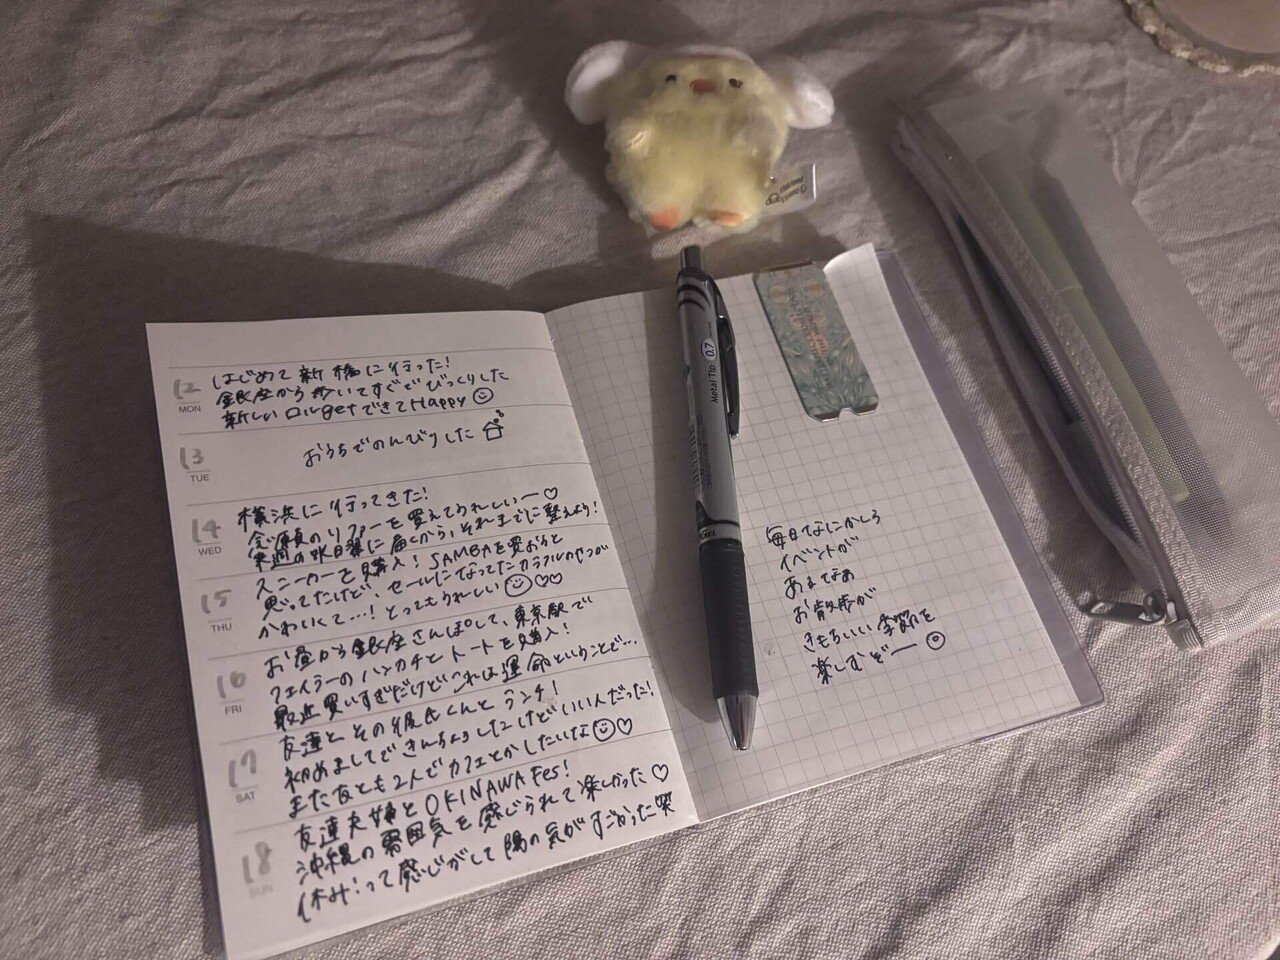 12
MON
はじめて新橋に行った!
銀座から歩いてすぐでびっくりした
新しいロルgetできてHappy
13
TUE
おうちでのんびりした
14
WED
横浜に行ってきた!
念願のリファーを買えてうれしいー♡
来週の水曜日に届くから、それまでに整えよう!
15
THU
スニーカーを購入! SAMBAを買おうと
思ってたけど、セールになってたカラフルのやつが
かわいくて…! とってもうれしい♡♡
16
FRI
お昼から銀座さんぽして、東京駅で
フェイラーのハンカチとトートを購入!
最近買いすぎだけどこれは運命ということで…
17
SAT
友達とその彼氏くんとランチ!
初めましてできんちょうしたけどいい人だった!
また友とも2人でカフェとかしたいな♡
18
SUN
友達夫婦とOKINAWA Fes!
沖縄の雰囲気を感じられて楽しかった♡
休み!って感じがして陽の気がすごかった笑
毎日なにかしら
イベントが
あるなあ
お散歩が
きもちいい季節を
楽しむぞー
Metal Tip 0.7